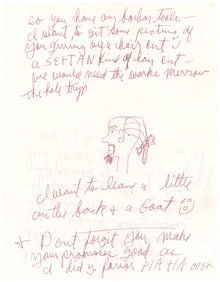 so you have any barber tools—
I want to get some picture of
you giving me a hair cut
a kind of hair cut—
we would need the works
the hole trip
I want to leave a little
on the back & a Goat
+ Dont forget you make
your promises good as
I did HA HA